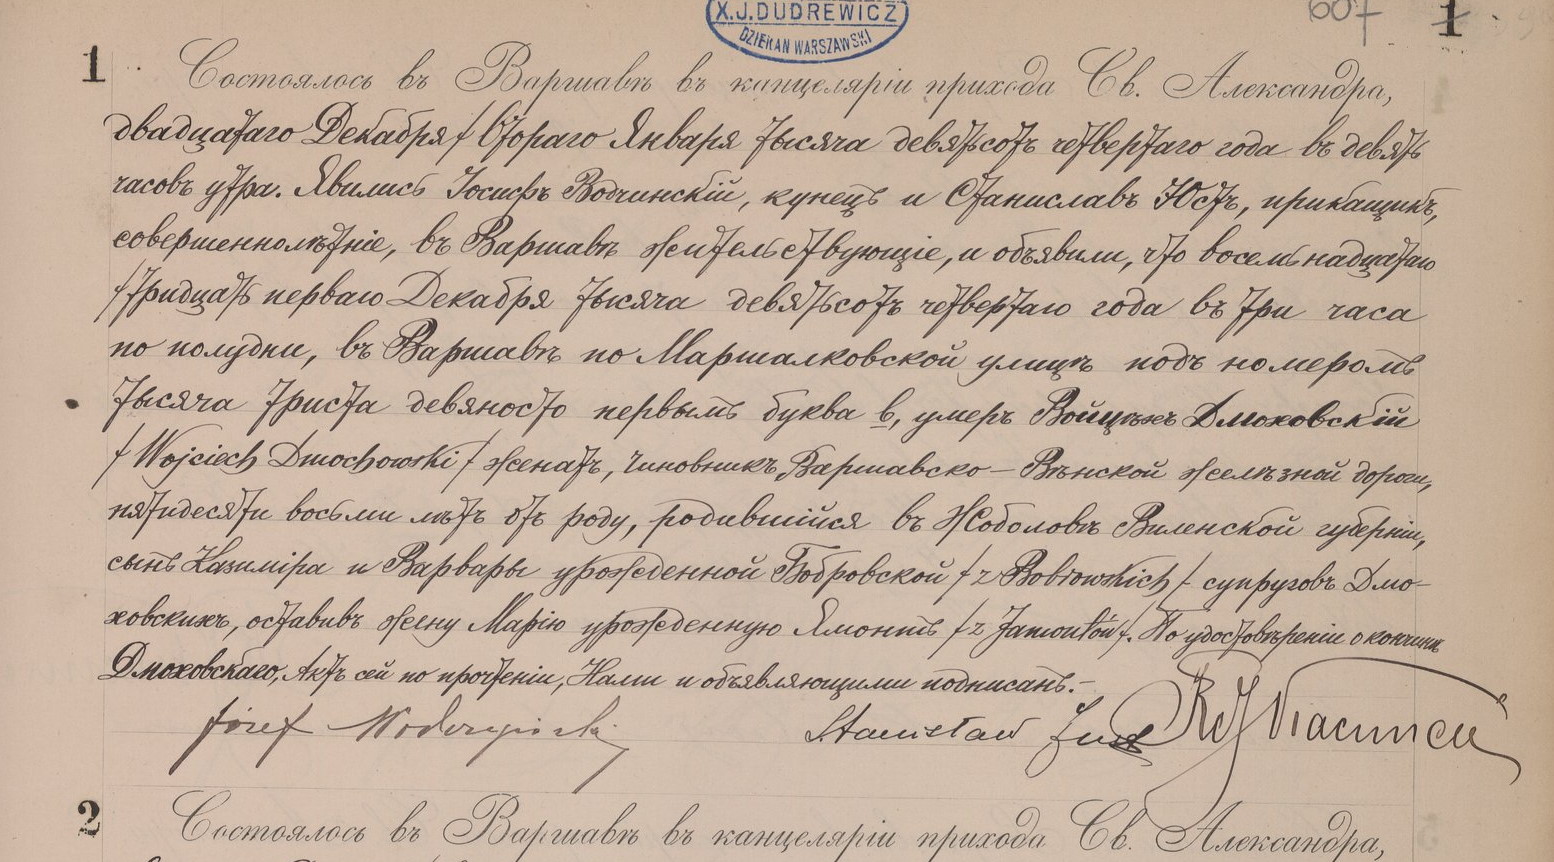 X.J.DUDREWICZ
DZIEKAN WARSZAWSKI
607 1
1 Состоялось въ Варшавѣ въ канцеляріи прихода Св. Александра,
двадцатаго Декабря / Втораго Января тысяча девятьсотъ четвертаго года въ девять
часовъ утра. Явились Іосифъ Водчинскій, купецъ и Станиславъ Юстъ, прикащикъ,
совершеннолѣтніе, въ Варшавѣ жительствующіе, и объявили, что восемьнадцатаго
/ тридцать перваго Декабря тысяча девятьсотъ четвертаго года въ три часа
по полудни, въ Варшавѣ по Маршалковской улицѣ подъ номеромъ
тысяча триста девяносто первымъ буква в, умеръ Войцѣхъ Дмоховскій
/ Wojciech Dmochowski / женатъ, чиновникъ Варшавско-Вѣнской желѣзной дороги,
пятидесяти восьми лѣтъ отъ роду, родившійся въ Жоболовѣ Виленской губерніи,
сынъ Казиміра и Варвары урожденной Бобровской / z Bobrowskich / супруговъ Дмо-
ховскихъ, оставивъ жену Марію урожденную Ямонтъ / z Jamontów /. По удостовѣреніи о кончинѣ
Дмоховскаго, Актъ сей по прочтеніи, Нами и объявляющими подписанъ.-
Józef Wodczyński Stanisław Just
2 Состоялось въ Варшавѣ въ канцеляріи прихода Св. Александра,